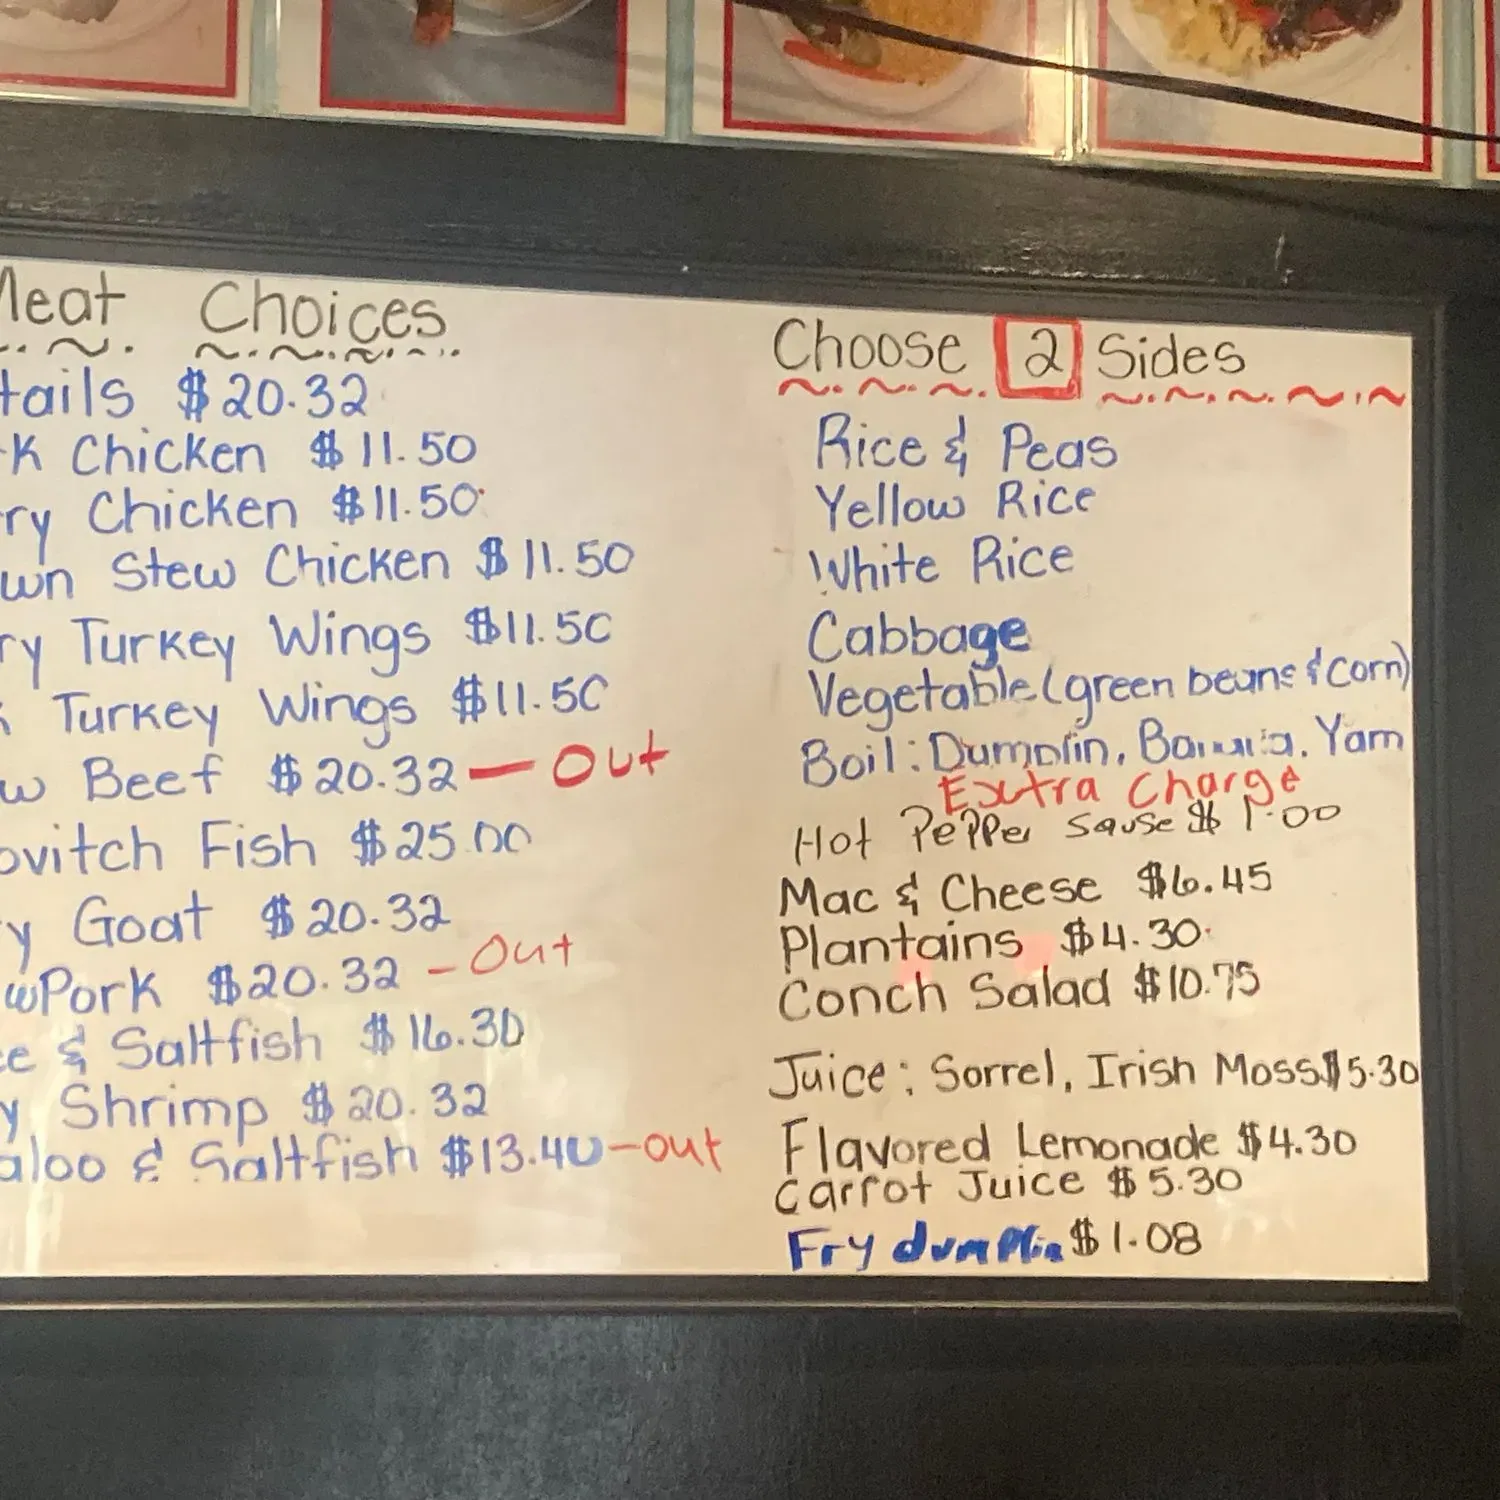 Meat Choices
tails $20.32
k Chicken $11.50
ry Chicken $11.50
wn Stew Chicken $11.50
ry Turkey Wings $11.50
Turkey Wings $11.50
w Beef $20.32 — Out
ovitch Fish $25.00
y Goat $20.32
w Pork $20.32 - Out
ee & Saltfish $16.30
y Shrimp $20.32
aloo & Saltfish $13.40 - out
Choose 2 Sides
Rice & Peas
Yellow Rice
White Rice
Cabbage
Vegetable (green beans & corn)
Boil: Dumplin, Banana, Yam
Extra Charge
Hot Pepper Sause $1.00
Mac & Cheese $6.45
Plantains $4.30
Conch Salad $10.75
Juice: Sorrel, Irish Moss $5.30
Flavored Lemonade $4.30
Carrot Juice $5.30
Fry dumplin $1.08